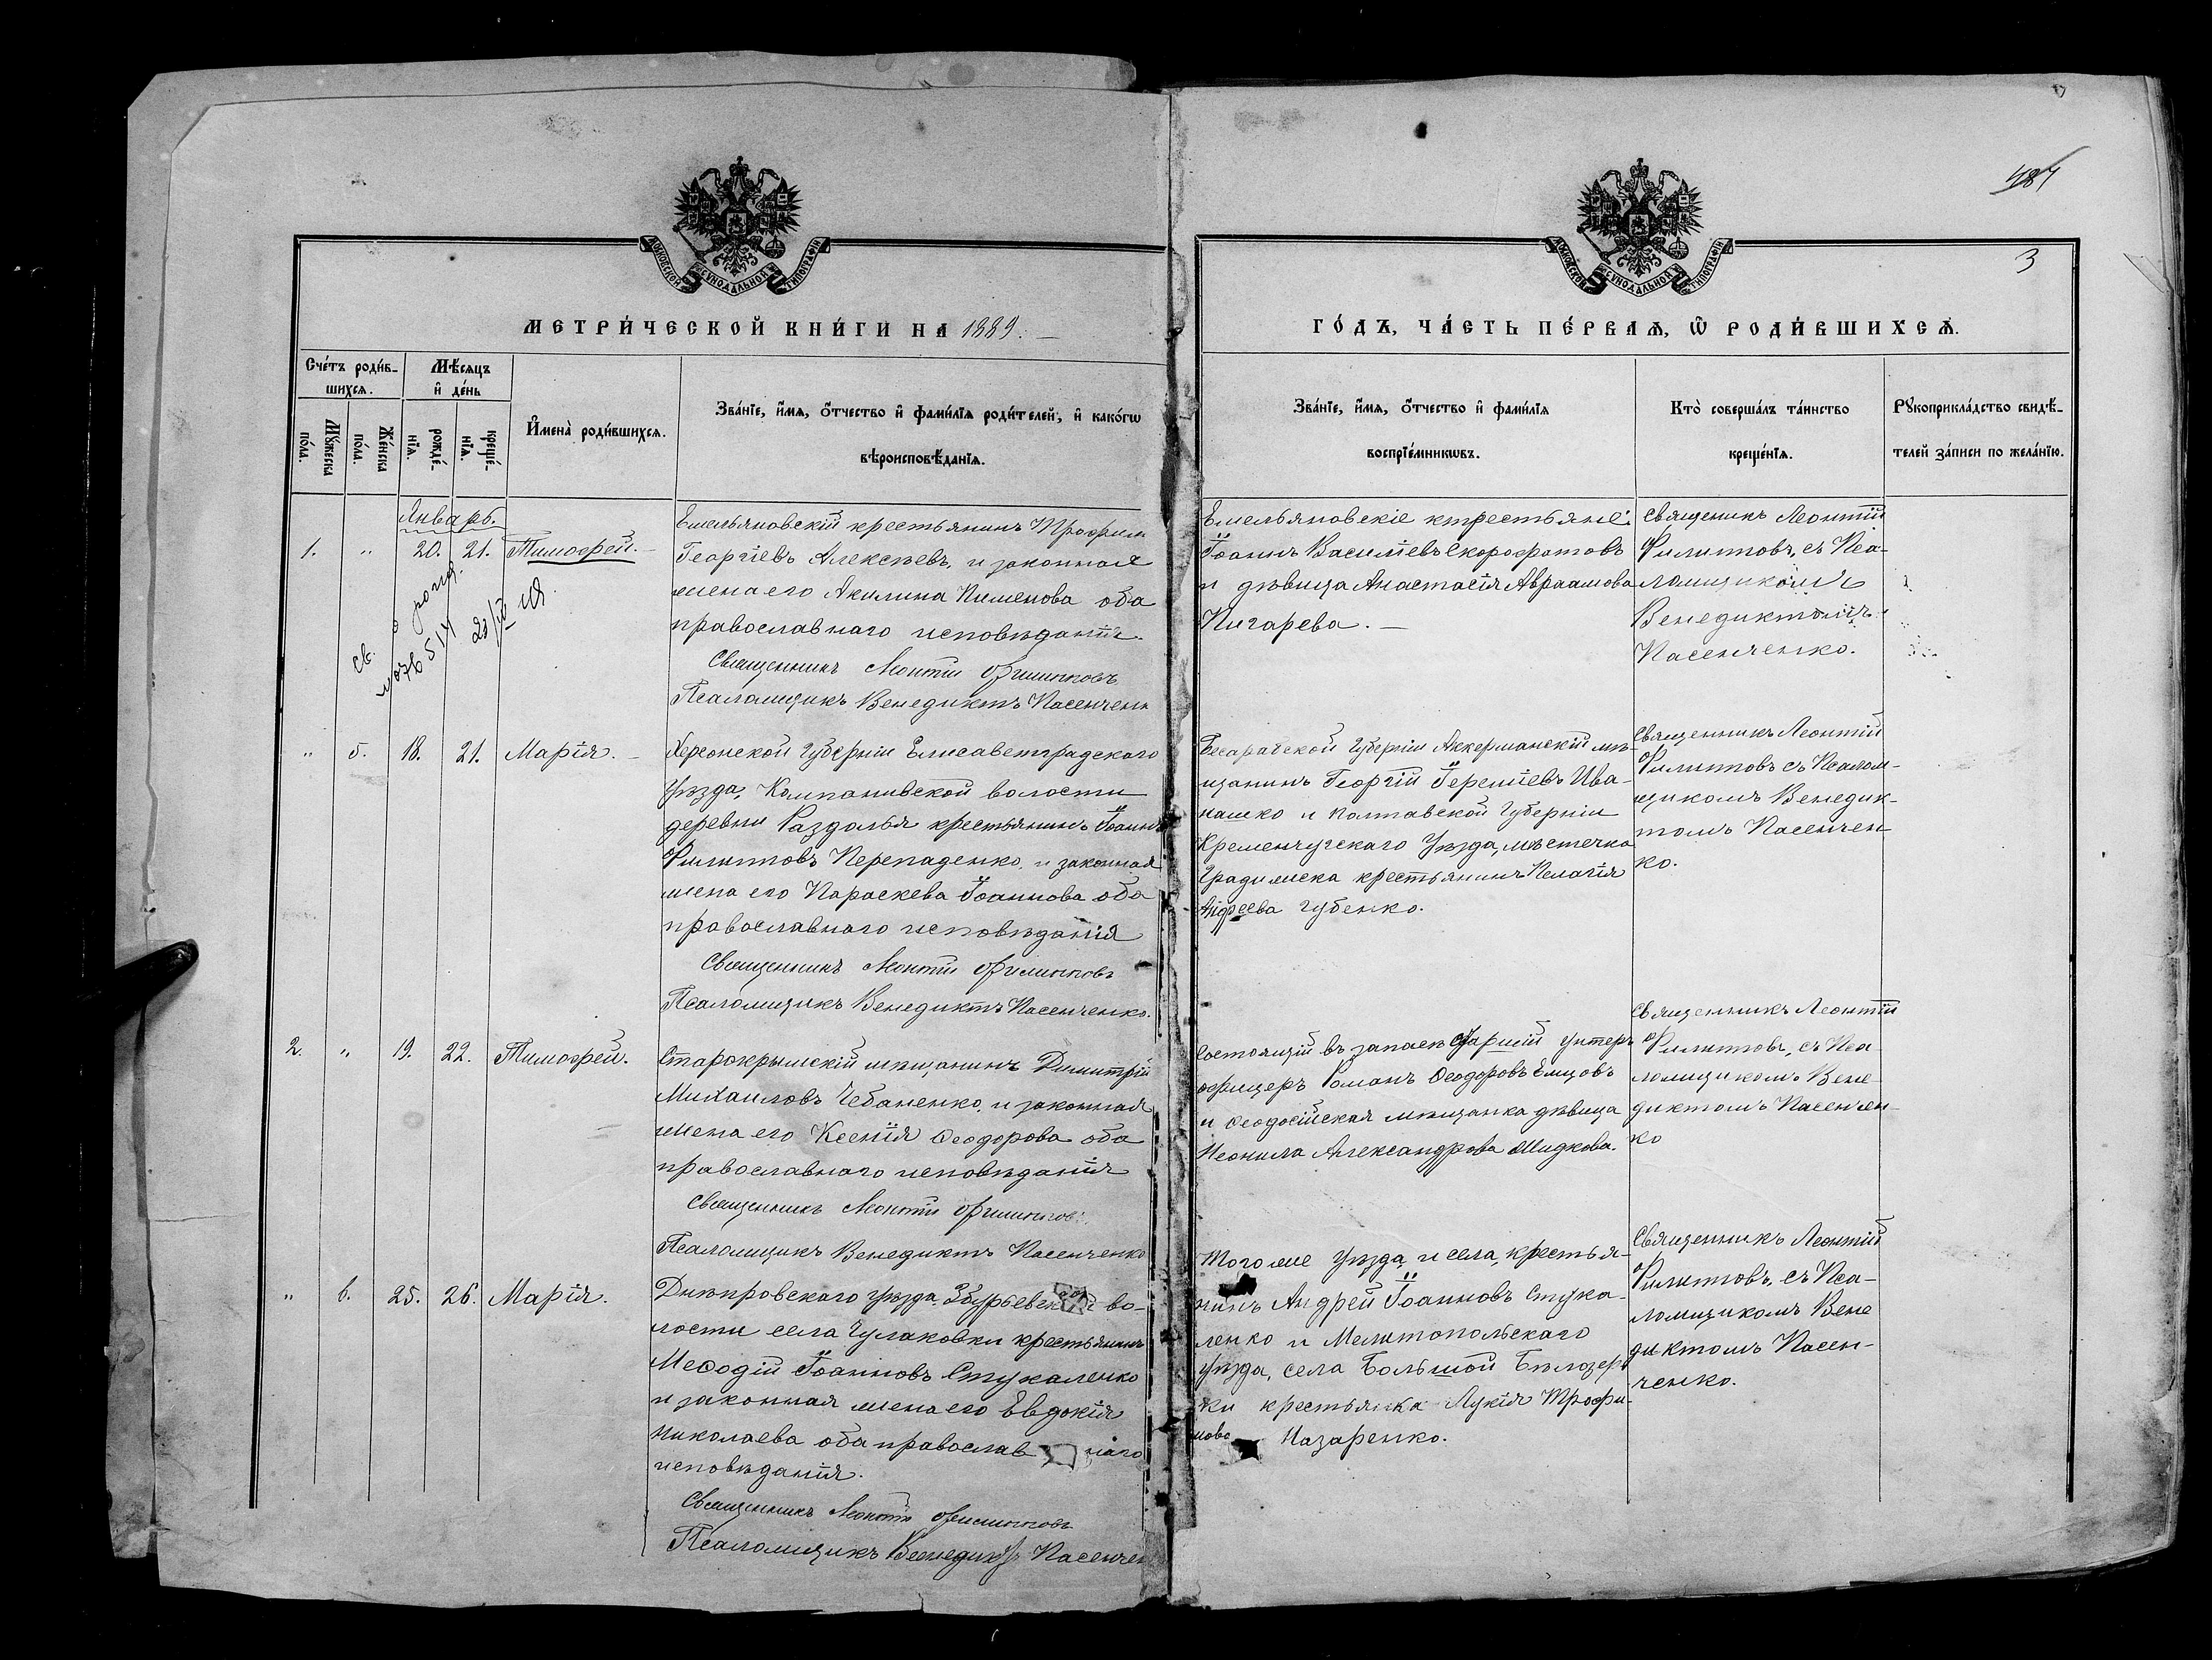 484
3
МОСКОВСКОЙ СѴНОДАЛЬНОЙ ТИПОГРАФІИ
МОСКОВСКОЙ СѴНОДАЛЬНОЙ ТИПОГРАФІИ
МЕТРИ́ЧЕСКОЙ КНИ́ГИ НА 1889.
ГО́ДЪ, ЧА́СТЬ ПЕ́РВАѦ, Ѡ҆ РОДИ́ВШИХСѦ.
Сче́тъ роди́в-
шихсѧ.
Мѣ́сѧцъ
и҆ де́нь
Мꙋ́жеска
по́ла.
Же́нска
по́ла.
рожде́-
нїѧ.
креще́-
нїѧ.
И҆мена̀ роди́вшихсѧ.
Зва́нїе, и҆́мѧ, ѻ҆́тчество и҆ фами́лїѧ роди́телей, и҆ како́гѡ
вѣроисповѣ́данїѧ.
Зва́нїе, и҆́мѧ, ѻ҆́тчество и҆ фами́лїѧ
воспрїе́мникѡвъ.
Кто̀ соверша́лъ та́инство
креще́нїѧ.
Рꙋкоприкла́дство свидѣ́-
телей за́писи по жела́нїю.
Январь.
1. " 20. 21. Тимофей.
св. о рожд.
Емельяновскій крестьянинъ Трофим
Георгіевъ Алексѣевъ, и законная
жена его Акилина Пименова оба
православнаго исповѣданія.
Священникъ Леонтій Филипповъ
Псаломщикъ Венедиктъ Пасенченк
Емельяновскіе ктрестьяне:
Іоаннъ Василіевъ Скорофатовъ
и дѣвица Анастасія Авраамова
Пигарева.
Священикъ Леонтій
Филипповъ, съ Пса-
ломщикомъ
Венедиктомъ
Пасенченко.
" 5. 18. 21. Марія.
Херсонской Губерніи Елисаветградскаго
Уѣзда, Компанивской волости
деревни Раздолья крестьянинъ Іоаннъ
Филипповъ Перепаденко, и законная
жена его Параскева Іоаннова оба
православнаго исповѣданія
Священникъ Леонтій Филипповъ
Псаломщикъ Венедиктъ Пасенченко.
Бесарабской Губерніи Аккерманскій мѣ-
щанинъ Георгій Іереміевъ Ива-
нашко и Полтавской Губерніи
Кременчугскаго Уѣзда, мѣстечка
Градижска крестьянинъ Пелагія
Андреева Губенко.
Священникъ Леонтій
Филипповъ съ Псалом-
щикомъ Венедик-
томъ Пасенчен
ко.
2. " 19. 22. Тимофей.
Старокрымскій мѣщанинъ Димитрій
Михаиловъ Чебаненко, и законная
жена его Ксенія Ѳеодорова оба
православнаго исповѣданія
Священникъ Леонтій Филиппов
Псаломщикъ Венедиктъ Пасенченко
Состоящій въ запасѣ Старшій унтеръ
офицеръ Романъ Ѳеодоровъ Емцовъ
и Ѳеодосійская мѣщанка дѣвица
Неонила Александрова Шидкова.
Священникъ Леонтій
Филипповъ, съ Пса
ломщикомъ Вене
диктомъ Пасенчен-
ко
" 6. 25. 26. Марія.
Днѣпровскаго уѣзда, Збурьевской во-
лости села Чулаковки крестьянинъ
Меѳодій Іоанновъ Стукаленко
и законная жена его Евдокія
Николаева оба православ наго
исповѣданія.
Священникъ Леонтій Филипповъ
Псаломщикъ Венедиктъ Пасенчен
Того же Уѣзда и села, крестья-
нинъ Андрей Іоанновъ Стука-
ленко и Мелитопольскаго
уѣзда, села Большой Бѣлозер
ки крестьянка Лукія Трофи-
мова Назаренко.
Священникъ Леонтій
Филипповъ, съ Пса-
ломщикомъ Вене
диктомъ Пасен-
ченко.